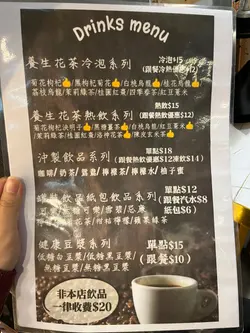 Drinks menu
養生花茶冷泡系列 冷泡+15
(跟餐冷熱優惠+12)
菊花枸杞👍/黑枸杞菊花👍/白桃烏龍/桂花烏龍👍
荔枝烏龍/茉莉綠茶/桂圓紅棗/四季春茶/紅豆薏米
養生花茶熱飲系列 熱飲$15
(跟餐熱飲優惠$12)
菊花枸杞決明子👍/黑糖薑茶👍/白桃烏龍/紅豆薏米👍
/茉莉綠茶/桂圓紅棗/洛神花茶👍/陳皮玄米茶👍
沖製飲品系列 單點$18
(跟餐熱飲優惠$12凍飲$14)
咖啡/奶茶/鴛鴦/檸檬茶/檸檬水/柚子蜜
飲品紙包飲品系列 單點$12
可樂/無糖可樂/雪碧/忌廉 (跟餐汽水$8
紙包$6)
健康豆漿系列 單點$15
低糖白豆漿/低糖黑豆漿/ (跟餐$10)
無糖豆漿/無糖黑豆漿
非本店飲品
一律收費$20